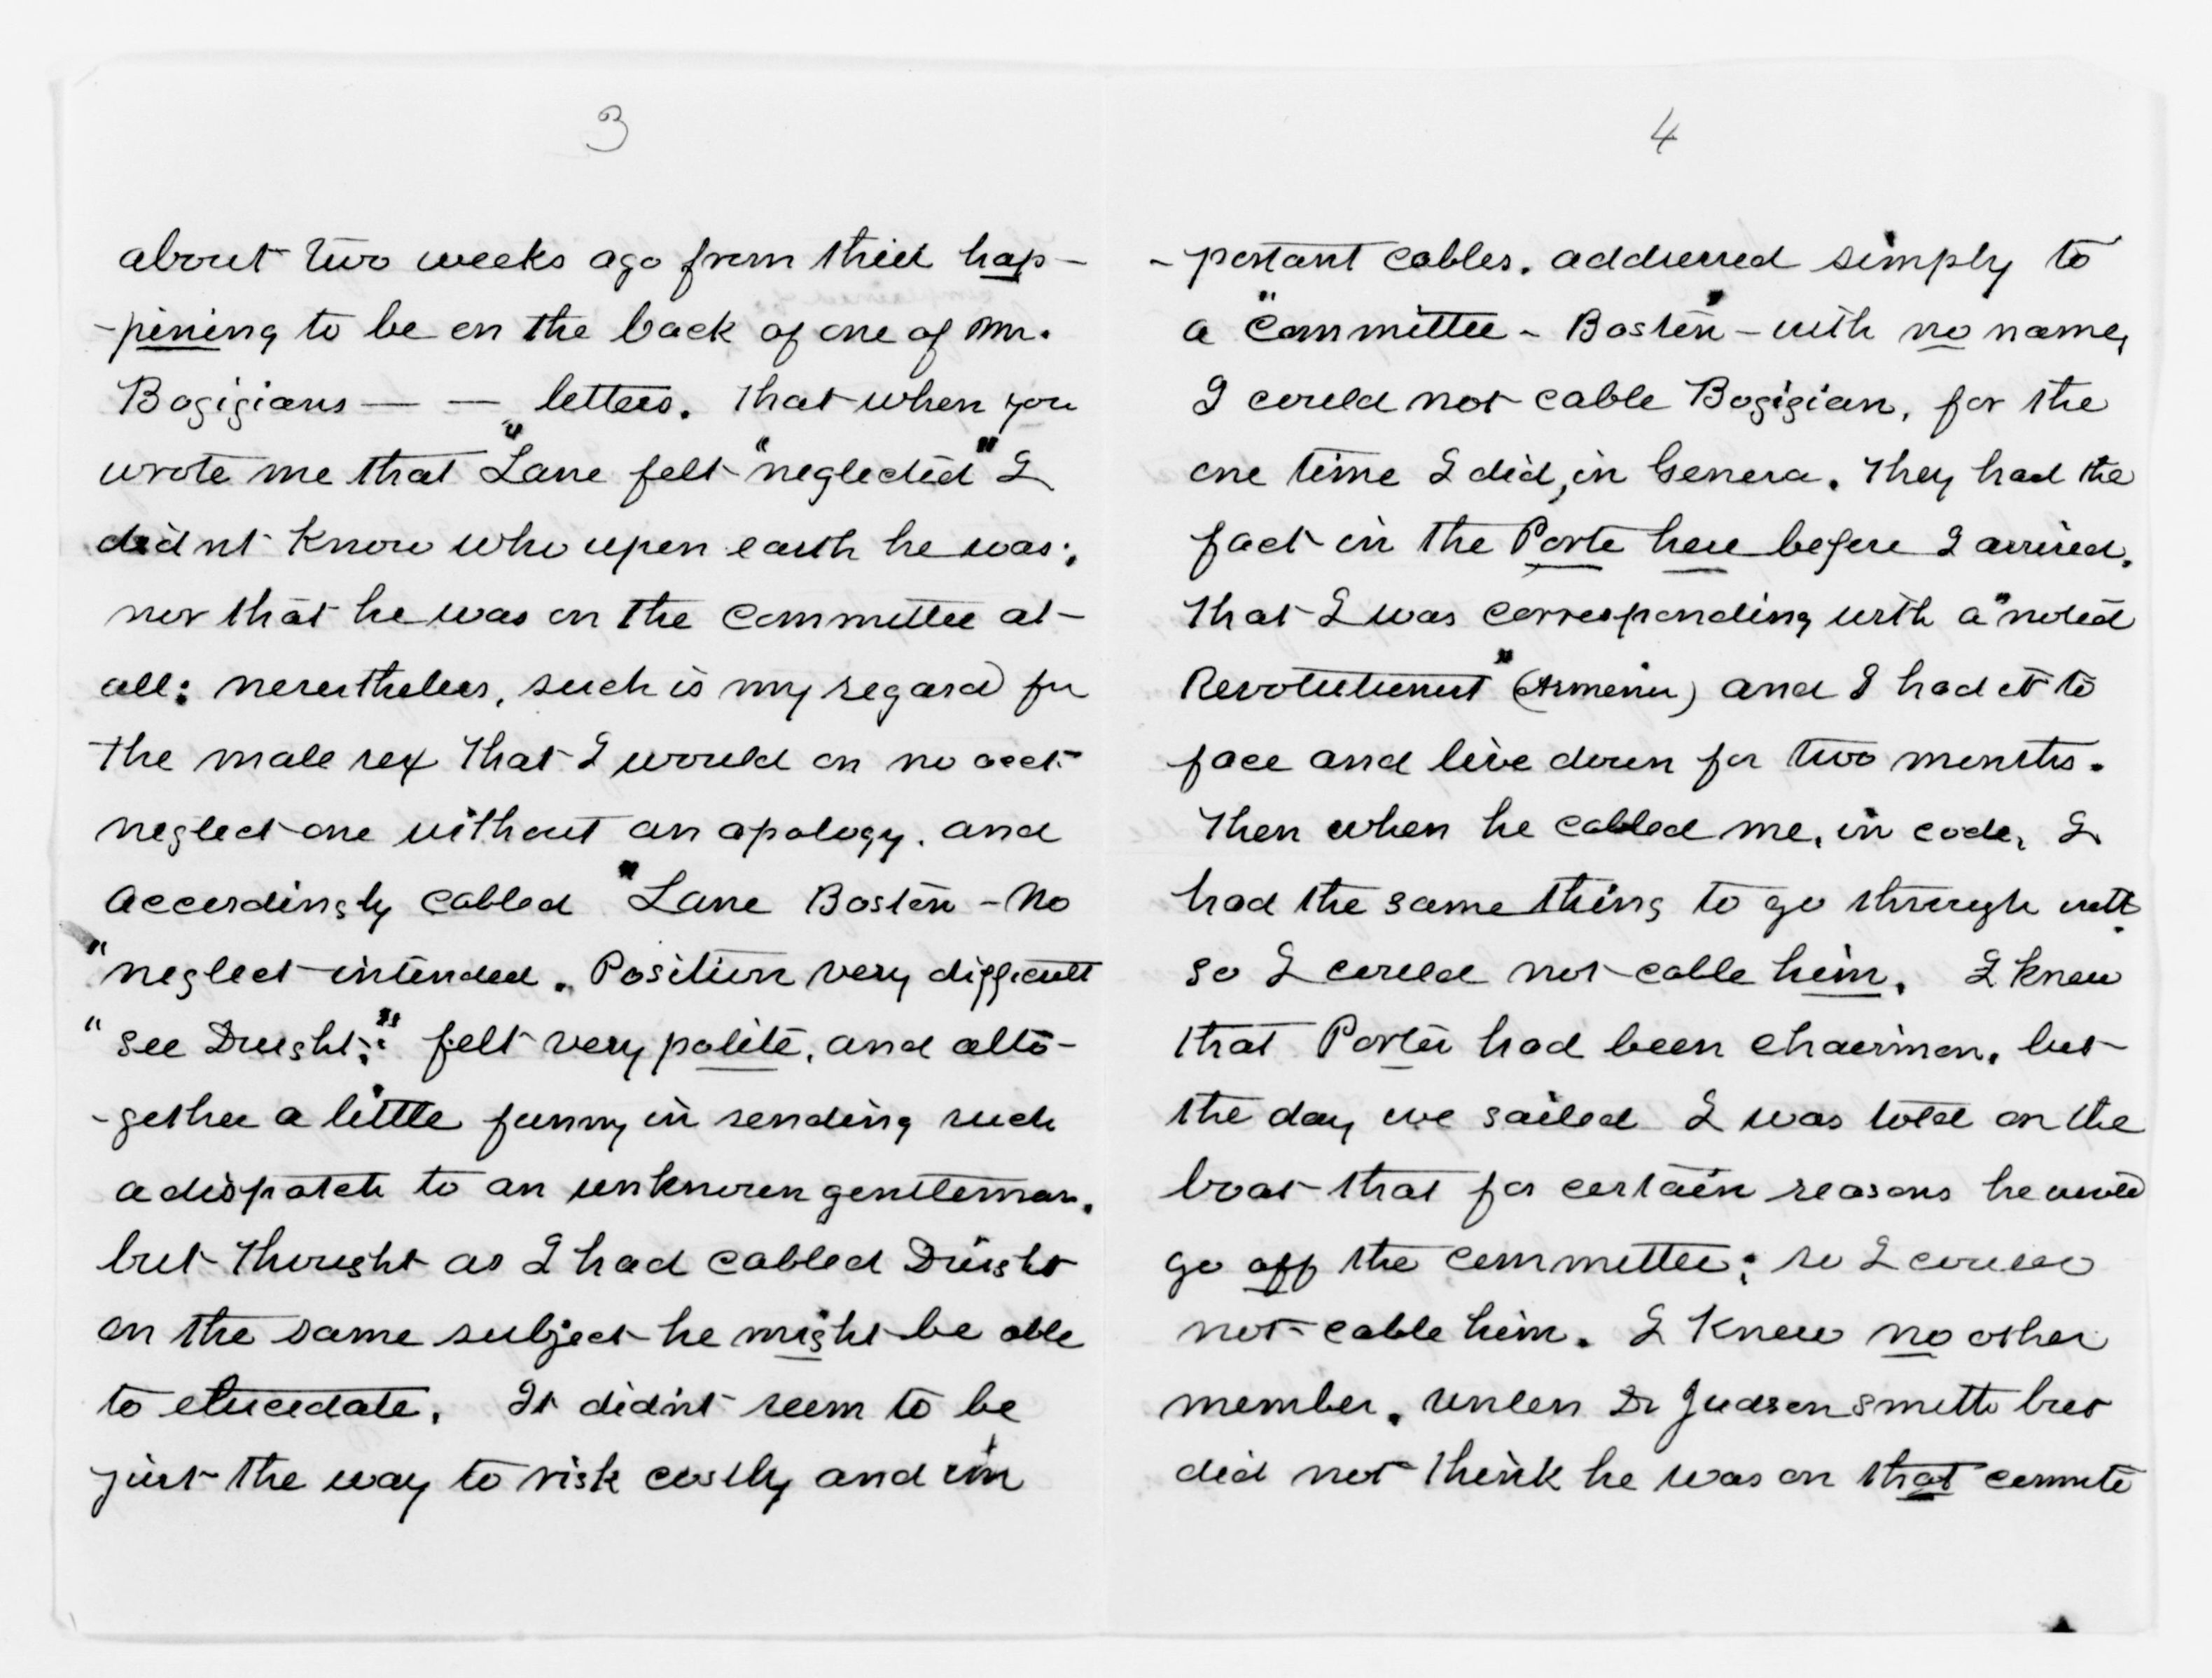 3
about two weeks ago from their hap-
-pining to be on the back of one of Mr.
Bogigians — — letters. That when you
wrote me that "Lane felt "neglected" I
didnt know who upon earth he was;
nor that he was on the committee at-
all: nevertheless, such is my regard for
the male sex that I would on no acct.
neglect one without an apology. and
accordingly cabled "Lane Boston - No
"neglect intended. Position very difficult
"see Dwight;" felt very polite, and alto-
-gether a little funny in sending such
a dispatch to an unknown gentleman.
but thought as I had cabled Dwight
on the same subject he might be able
to elucidate. It didnt seem to be
just the way to risk costly and im
4
-portant cables. addressed simply to
a "Committee - Boston" - with no name,
I could not cable Bogigian, for the
one time I did, in Geneva. They had the
fact in the Porte here before I arrived.
that I was corresponding with a "noted
Revolutionist" (Armenian) and I had it to
face and live down for two months.
Then when he cabled me, in code, I
had the same thing to go through with.
so I could not cable him. I knew
that Porter had been chairman. but
the day we sailed I was told on the
boat that for certain reasons he would
go off the committee; so I could
not cable him. I knew no other
member. unless Dr Judson Smith but
did not think he was on that commte